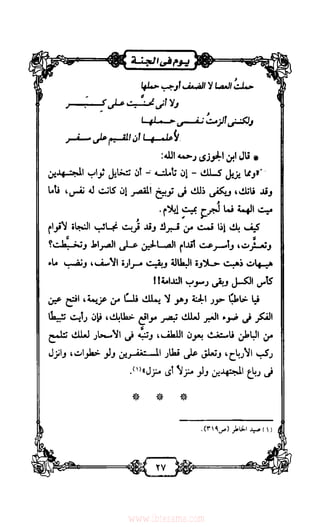 يوم في الجنة
حملتُ العصا لا الضعف أوجب حملها
ولا أني تحنَّيت على كبر
ولكنني ألزمتُ نفسي حملها
لأعلمها أن المقيم على سفر
* قال ابن الجوزي رحمه الله:
"وما يزيل كسلك - إن تأملته - أن تتخايل ثواب المجتهدين
وقد فاتك، ويكفي ذلك في توبيخ المقصر إن كانت له نفس، فأما
ميت الهمة فما لجرح بميت إيلام.
كيف بك إذا قمت من قبرك وقد قُربت نجائب النجاة لأقوام
وتعثَّرت، وأسرعت أقدام الصالحين على الصراط وتخبَّطت؟
هيهات ذهبت حلاوة البطالة وبقيت مرارة الأسف، ونضب ماء
كأس الكسل وبقى رسوب الندامة!!
فيا خاطبًا حور الجنة وهو لا يملك فلسًا من عزيمة، افتح عين
الفكر في ضوء العبر لعلك تبصر مواقع خطابك، فإن رأيت تثبيطًا
من الباطن فاستغث بعون اللطف، وتنبَّه في الأسحار لعلك تتلمح
ركب الأرباح، وتعلق على قطار المستغفرين ولو خطوات، وانزل
في رباع المجتهدين ولو منزلاً أي منزل"(١).
* * *
(١) صيد الخاطر (ص٣١٩).
٢٧
www.ibtesama.com